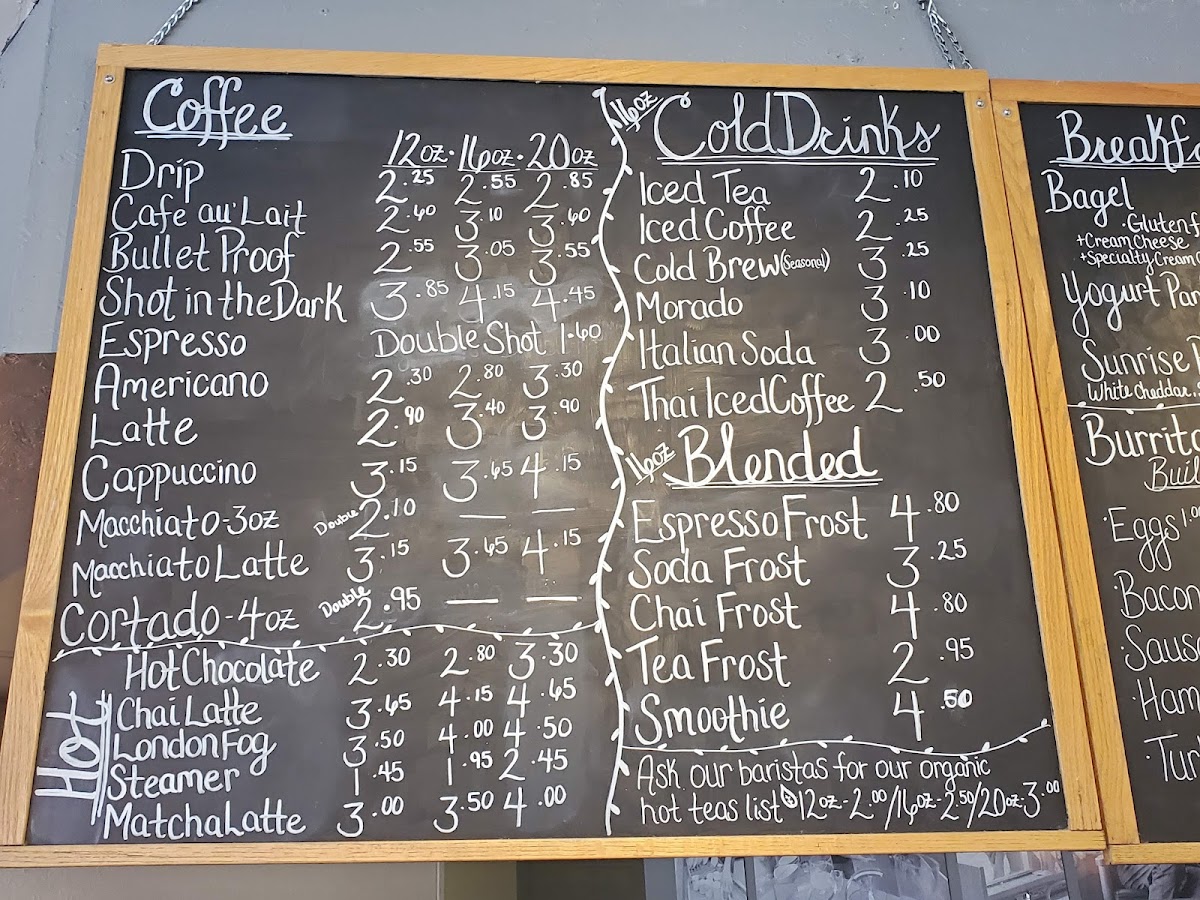 Coffee
12oz · 16oz · 20oz
Drip 2.25 2.55 2.85
Cafe au' Lait 2.60 3.10 3.60
Bullet Proof 2.55 3.05 3.55
Shot in the Dark 3.85 4.15 4.45
Espresso Double Shot 1.60
Americano 2.30 2.80 3.30
Latte 2.90 3.40 3.90
Cappuccino 3.15 3.65 4.15
Macchiato-3oz Double 2.10 — —
Macchiato Latte 3.15 3.65 4.15
Cortado-4oz Double 2.95 — —
Hot
Hot Chocolate 2.30 2.80 3.30
Chai Latte 3.65 4.15 4.65
London Fog 3.50 4.00 4.50
Steamer 1.45 1.95 2.45
Matcha Latte 3.00 3.50 4.00
16oz Cold Drinks
Iced Tea 2.10
Iced Coffee 2.25
Cold Brew (Seasonal) 3.25
Morado 3.10
Italian Soda 3.00
Thai Iced Coffee 2.50
16oz Blended
Espresso Frost 4.80
Soda Frost 3.25
Chai Frost 4.80
Tea Frost 2.95
Smoothie 4.60
Ask our baristas for our organic
hot teas list 12oz-2.00/16oz-2.50/20oz-3.00
Breakfa
Bagel
·Gluten f
+Cream Cheese
+Specialty Cream
Yogurt Par
Sunrise
White Cheddar
Burrito
Buil
·Eggs 1.00
·Bacon
·Sausa
·Ham
·Tur